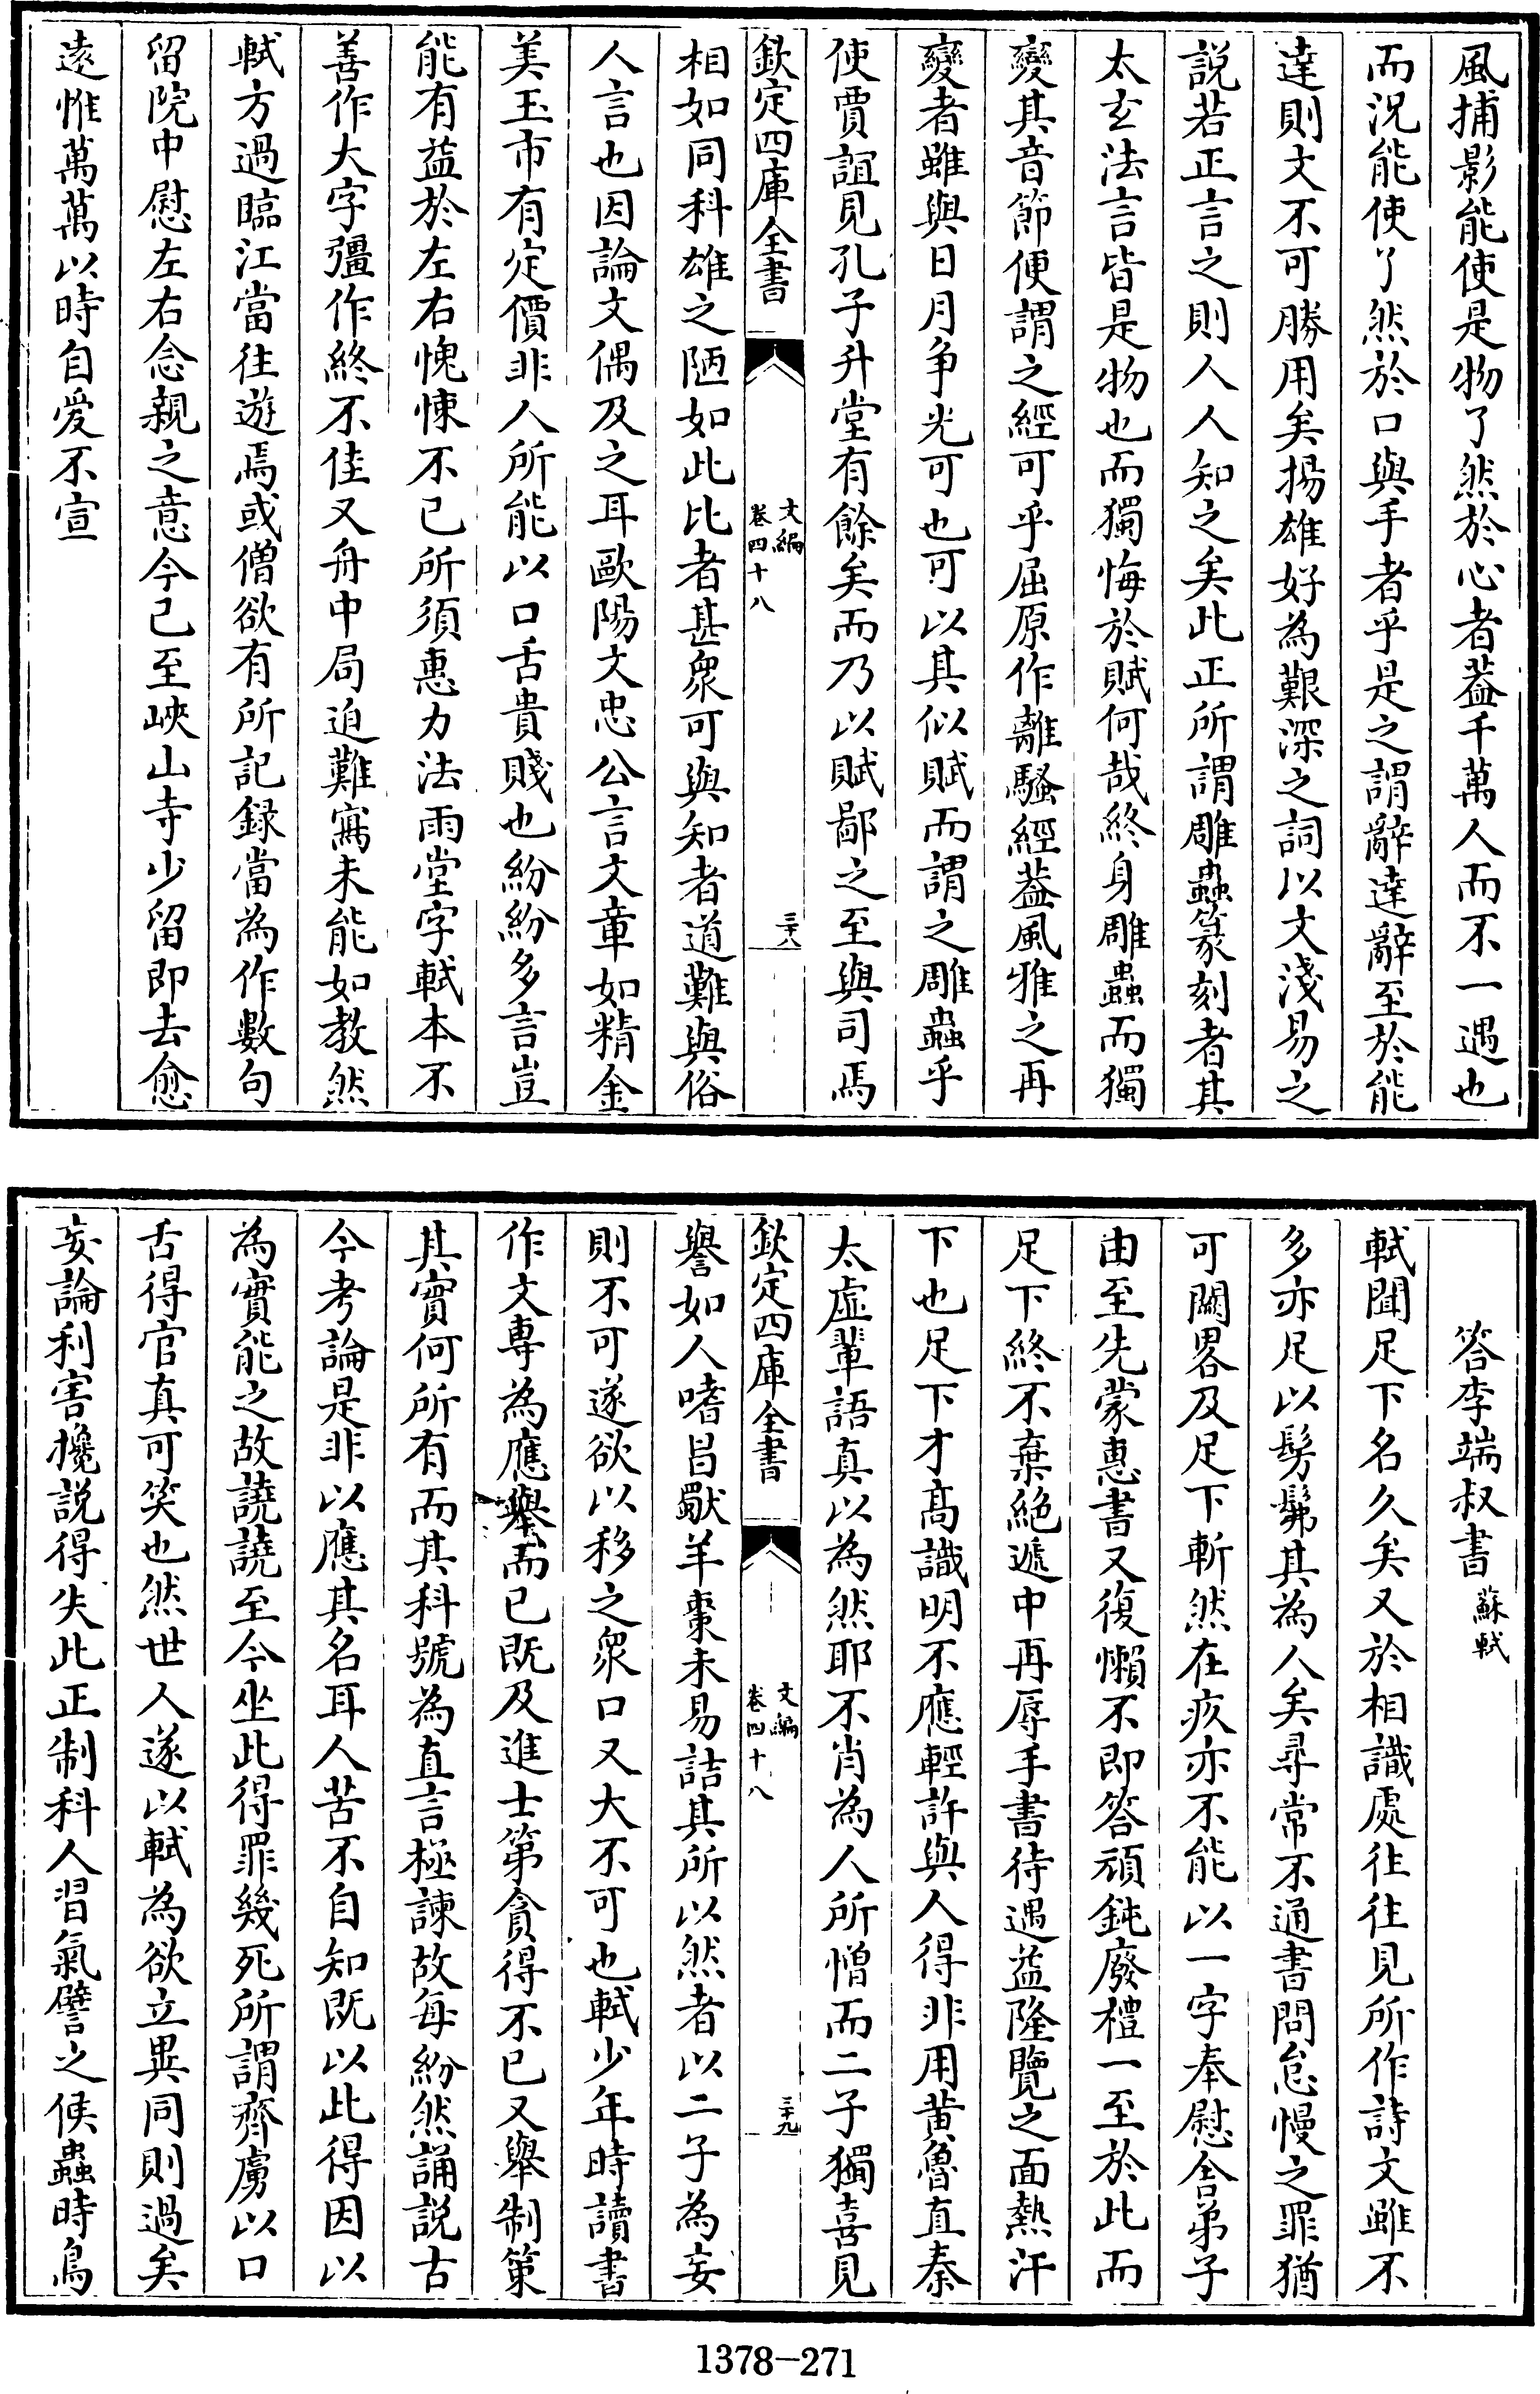 風捕影能使是物了然於心者葢千萬人而不一遇也
而況能使了然於口與手者乎是之謂辭達辭至於能
達則文不可勝用矣揚雄好為艱深之詞以文淺易之
說若正言之則人人知之矣此正所謂雕蟲篆刻者其
太玄法言皆是物也而獨悔於賦何哉終身雕蟲而獨
變其音節便謂之經可乎屈原作離騷經葢風雅之再
變者雖與日月争光可也可以其似賦而謂之雕蟲乎
使賈誼見孔子升堂有餘矣而乃以賦鄙之至與司馬
欽定四庫全書
文編
卷四十八
三十八
相如同科雄之陋如此比者甚衆可與知者道難與俗
人言也因論文偶及之耳歐陽文忠公言文章如精金
美玉市有定價非人所能以口舌貴賤也紛紛多言豈
能有益於左右愧悚不已所須惠力法雨堂字軾本不
善作大字彊作終不佳又舟中局迫難寫未能如教然
軾方過臨江當往遊焉或僧欲有所記録當為作數句
留院中慰左右念親之意今已至峽山寺少留即去愈
遠惟萬萬以時自愛不宣
答李端叔書 蘇軾
軾聞足下名久矣又於相識處往往見所作詩文雖不
多亦足以髣髴其為人矣尋常不通書問怠慢之罪猶
可闊畧及足下斬然在疚亦不能以一字奉慰舍弟子
由至先蒙惠書又復懶不即答頑鈍廢禮一至於此而
足下終不棄絶遞中再辱手書待遇益隆覽之面熱汗
下也足下才髙識明不應輕許與人得非用黄魯直秦
太虛輩語真以為然耶不肖為人所憎而二子獨喜見
欽定四庫全書
文編
卷四十八
三十九
譽如人嗜昌歜羊棗未易詰其所以然者以二子為妄
則不可遂欲以移之衆口又大不可也軾少年時讀書
作文專為應舉而已既及進士第貪得不已又舉制策
其實何所有而其科號為直言極諫故每紛然誦說古
今考論是非以應其名耳人苦不自知既以此得因以
為實能之故譊譊至今坐此得罪幾死所謂齊虜以口
舌得官真可笑也然世人遂以軾為欲立異同則過矣
妄論利害攙說得失此正制科人習氣譬之候蟲時鳥
1378-271